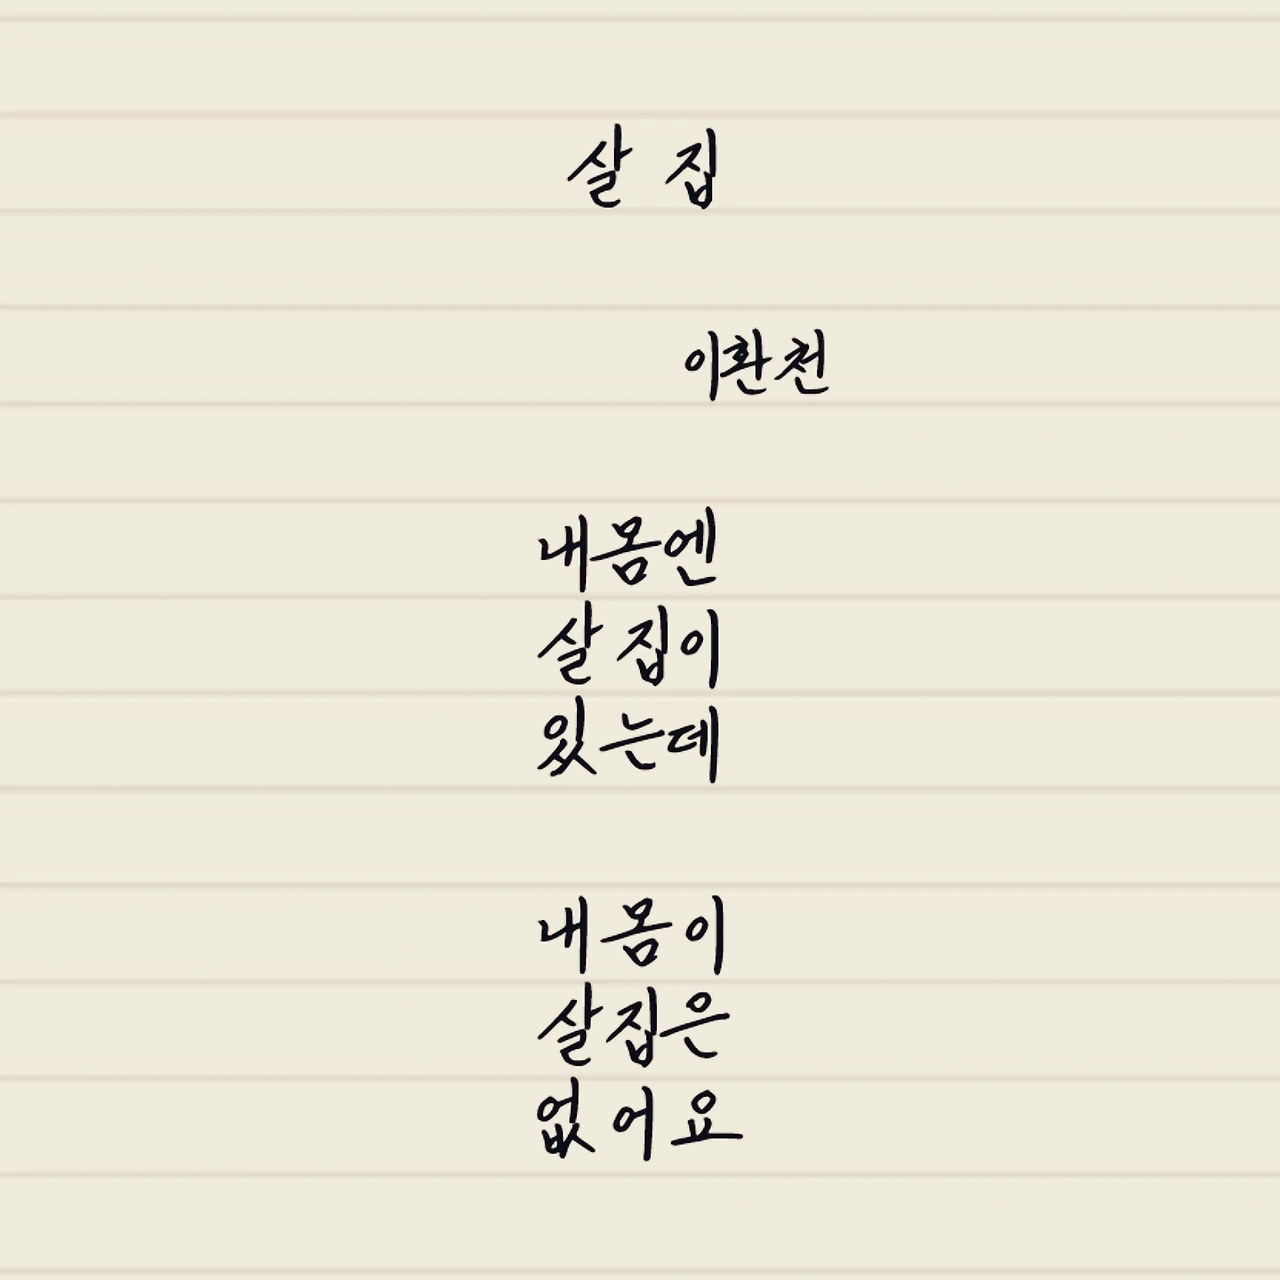 살 집
이환천
내몸엔
살 집이
있는데
내몸이
살집은
없어요